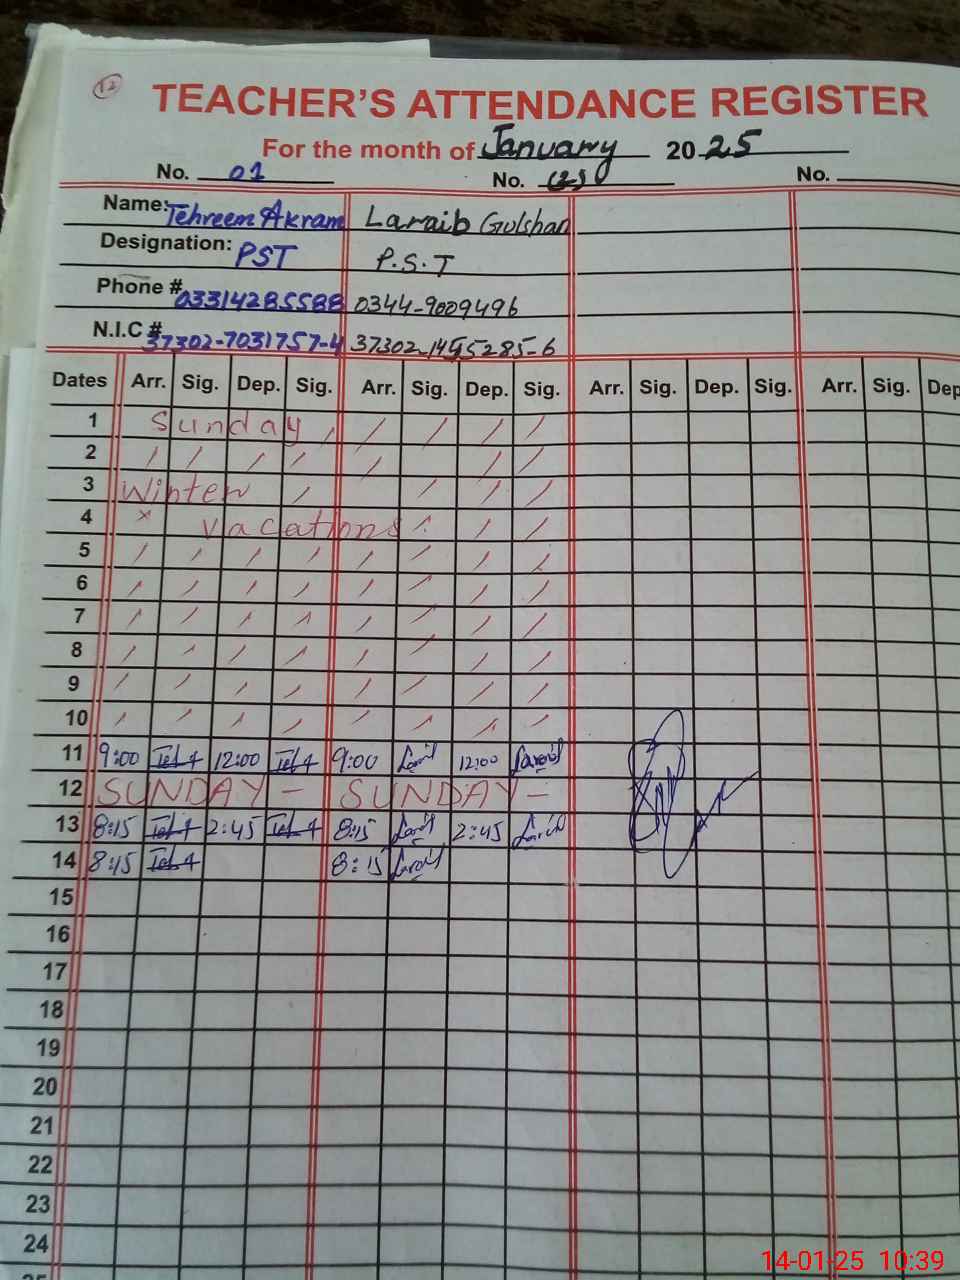 12
TEACHER'S ATTENDANCE REGISTER
For the month of January 2025
No. 01 No. No.
Name: Tehreem Akram Laraib Gulshan
Designation: PST P.S.T
Phone # 03314285588 0344-9009496
N.I.C # 37302-7031757-4 37302-1455285-6
Dates Arr. Sig. Dep. Sig. Arr. Sig. Dep. Sig. Arr. Sig. Dep. Sig. Arr. Sig. Dep
1 Sunday
2
3 Winter
4 vacations
5
6
7
8
9
10
11 9:00 12:00 9:00 12:00
12 SUNDAY - SUNDAY -
13 8:15 2:45 8:15 2:45
14 8:15 8:15
15
16
17
18
19
20
21
22
23
24
25
14-01-25 10:39